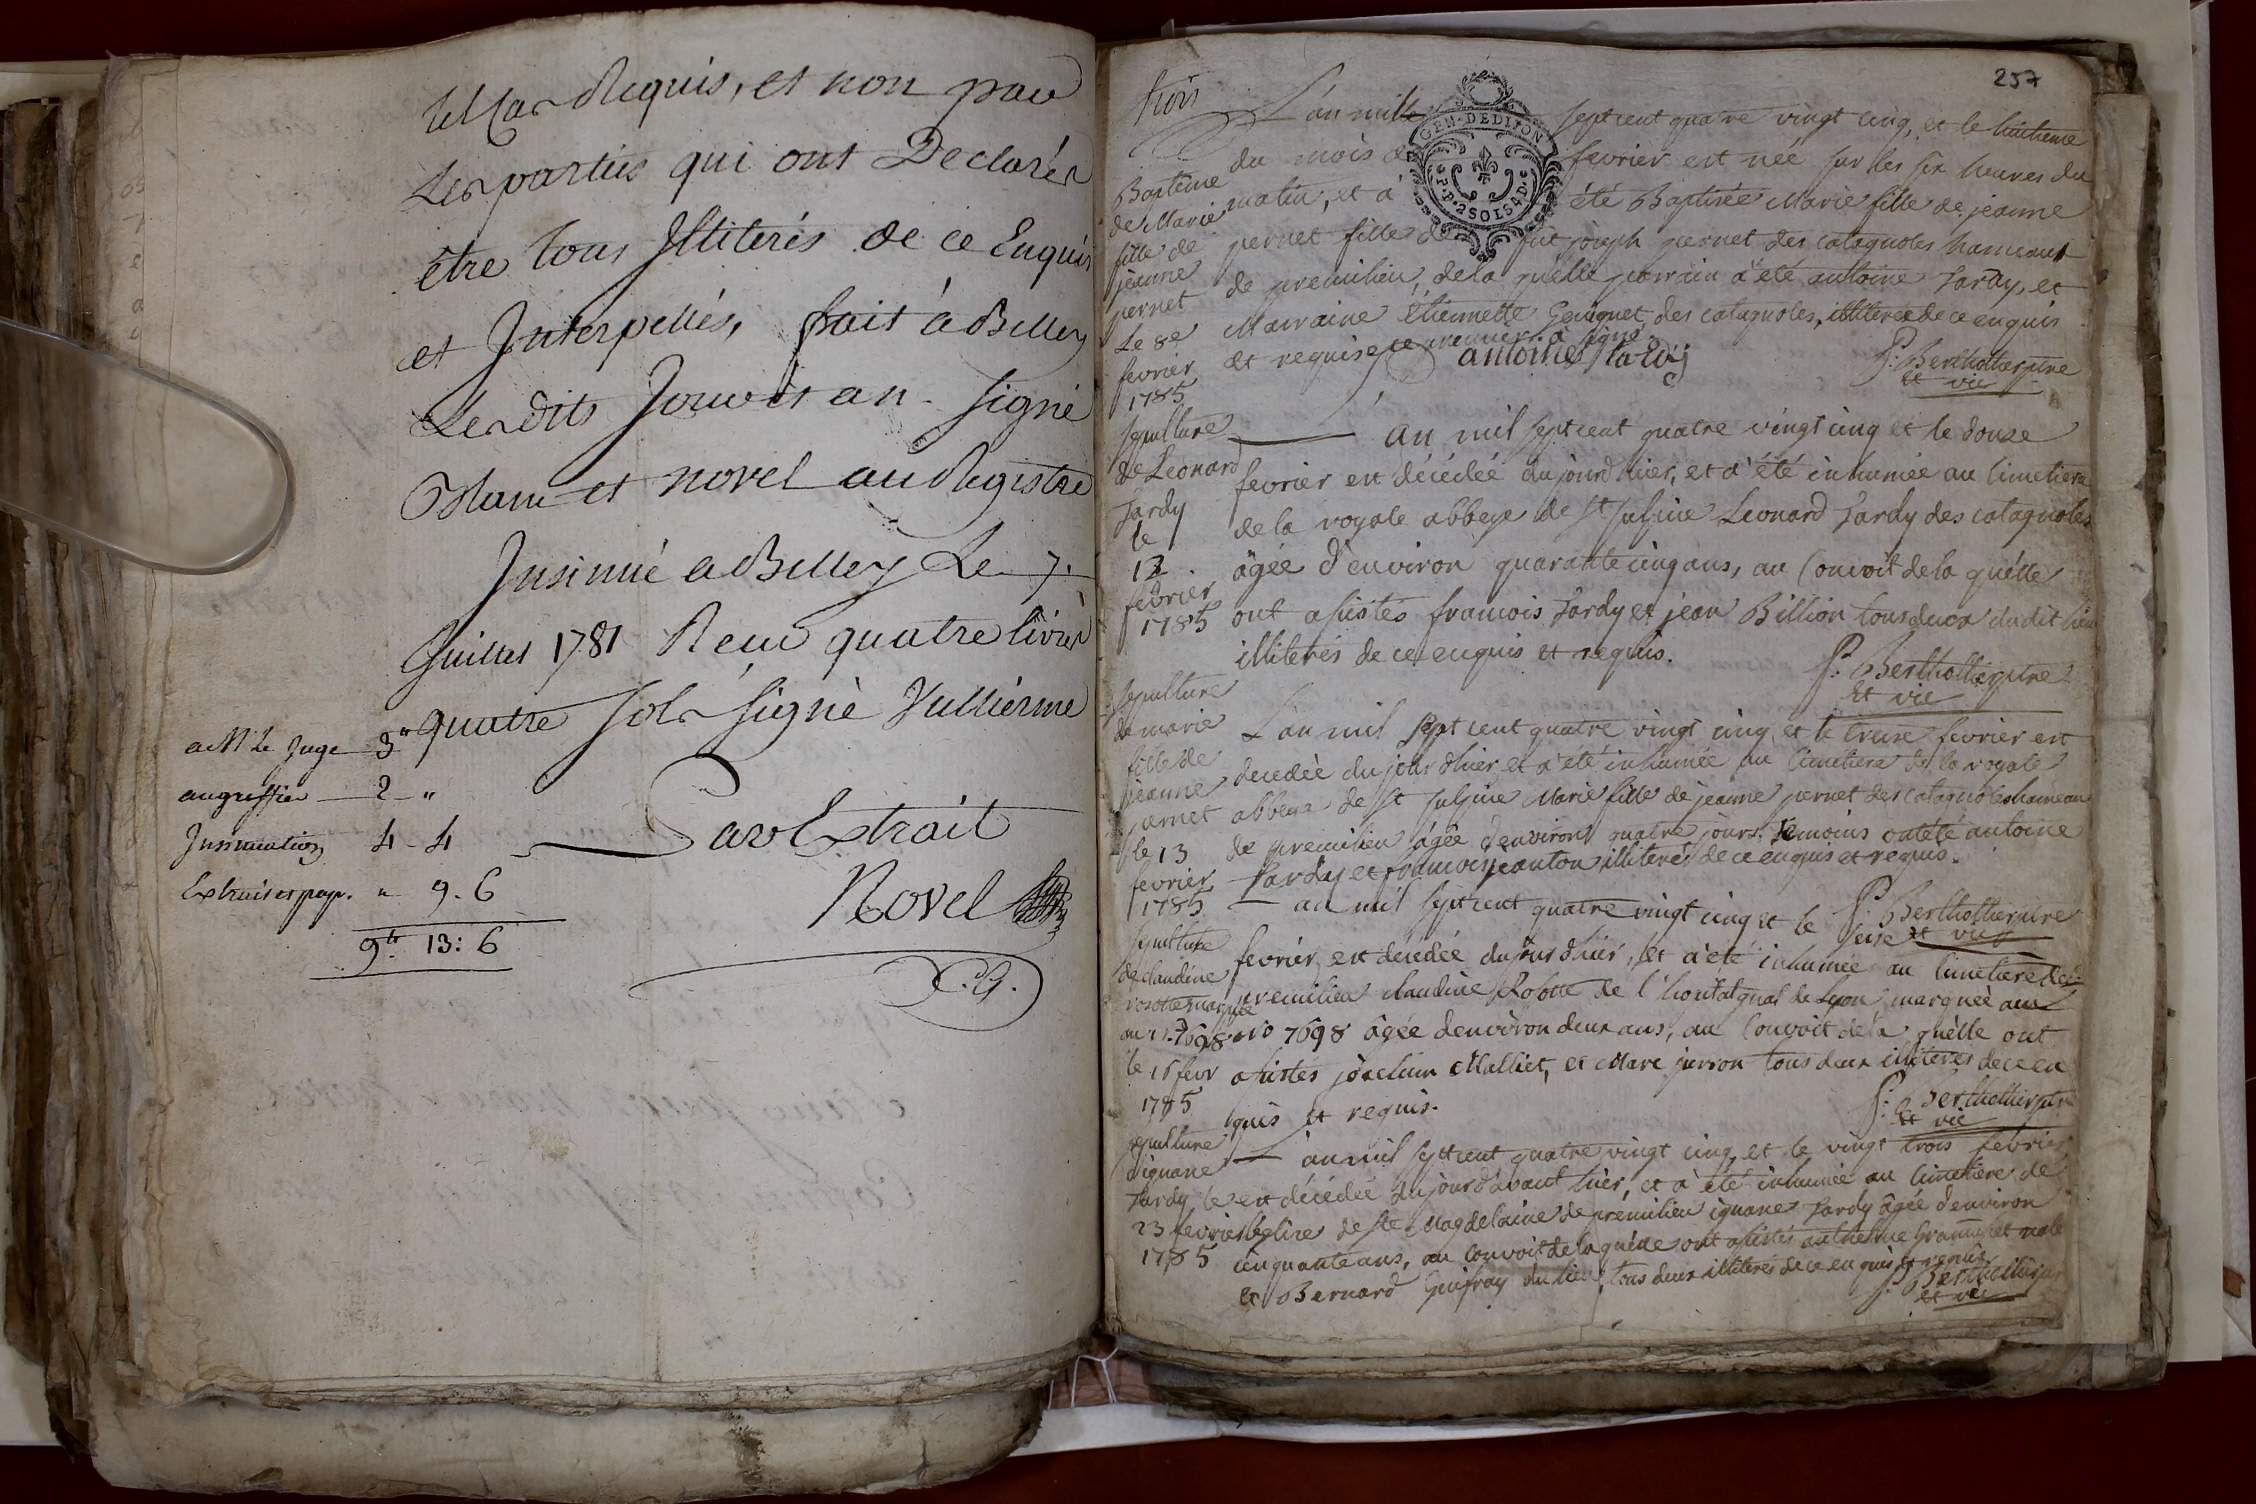 Requis, et non pau
Les parties qui ont Declarés
être tous Illiterés de ce Enquis
et Interpellés, fait à Belley
Les dits Jour et an. Signé
et novel au Registre
Insinué a Belley Le 7.
Juillet 1781 Reçu quatre livres
quatre sols signé Vulliérme
a Mr Le Juge 3"
au greffier 2 - "
Insinuation 4 - 4
Extrait et pap. " 9 . 6
9tt 13 : 6
Par Extrait
Novel
257
trois
GEN. DE DIJON
P.P. 2 SOLS 4 D.
Baptême
de Marie
fille de
jeanne
pernet
Le 8e
fevrier
1785
L'an mille sept cent quatre vingt cinq, et le huitieme
du mois de fevrier est née sur les six heures du
matin, et a été Baptisée Marie fille de jeanne
pernet fille de fut joseph pernet des catagnoles hameaut
de premilieu, de la quelle parrain a été antoine Tardy, et
Marraine Etiennette Genguet des catagnoles, illiterée de ce enquis
et requise, ce premier à signé.
antoine tardy
P: Berthollier ptre
et vic
sepulture
de Leonard
Tardy
le
12.
fevrier
1785
L'an mil sept cent quatre vingt cinq et le douse
fevrier est décédée du jourd'hier, et a été inhumée au cimetiere
de la royale abbeye de St Sulpice Leonard Tardy des catagnoles
âgée d'environ quarante cinq ans, au Convoit de la quelle
ont asistés francois Tardy et jean Billion tous deux du dit lieu
illiterés de ce enquis et requis.
P: Berthollier ptre
et vic
sepulture
de marie
fille de
jeanne
pernet
le 13
fevrier
1785
L'an mil sept cent quatre vingt cinq et le treize fevrier est
decedée du jour d'hier et a été inhumée au cimetiere de la royale
abbeye de St Sulpice Marie fille de jeanne pernet des catagnoles hameau
de premilieu âgée d'environt quatre jours, temoins ont été antoine
Tardy et francois jeanton illiterés de ce enquis et requis.
P: Berthollier ptre
et vic
sepulture
de claudine
rosotte marquée
au n.o 7698
le 16 fevr
1785
L'an mil sept cent quatre vingt cinq et le seise
fevrier, est décedée du jour d'hier, et a été inhumée au cimetiere de
premilieu claudine Rosotte de l'hopital de Lyon marquée au
n.o 7698 âgée denviron deux ans, au Convoit de la quelle ont
asistés Malliet, et Marc perron tous deux illiterés de ce en
quis et requis.
P: Berthollier ptre
et vic
sepulture
dignane
Tardy le
23 fevrier
1785
L'an mil sept cent quatre vingt cinq, et le vingt trois fevrier
est décédée du jour d'avant hier, et a été inhumée au cimetiere de
l'eglise de Ste Magdelaine de premilieu ignane Tardy âgée d'environ
cinquante ans, au Convoit de la quelle ont asistés
et Bernard Guifray du lieu, tous deux illiterés de ce enquis et requis
P: Berthollier ptre
et vic